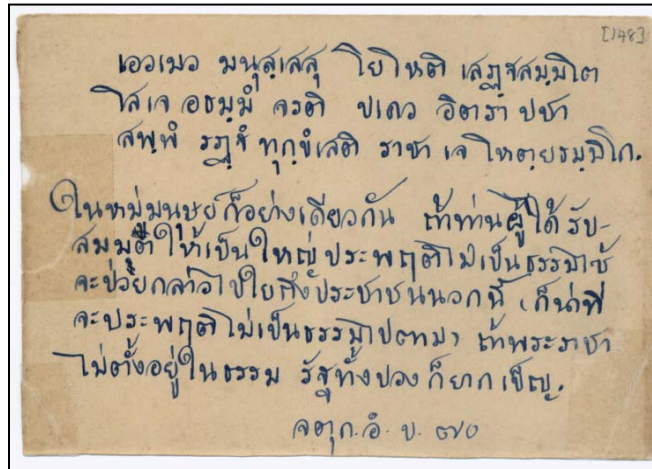 [148]
เอวเมว มนุสฺเสสุ โย โหติ เสฏฺฐสมฺมโต
โส เจ อธมฺมํ จรติ ปเคว อิตรา ปชา
สพฺพํ รฏฺฐํ ทุกฺขํ เสติ ราชา เจ โหตฺยธมฺมิโก.
ในหมู่มนุษย์ก็อย่างเดียวกัน ถ้าท่านผู้ได้รับ-
สมมุติให้เป็นใหญ่ประพฤติไม่เป็นธรรมไซ้
จะป่วยกล่าวไปใยถึงประชาชนนอกนี้ ก็น่าที่
จะประพฤติไม่เป็นธรรมไปตามๆ ถ้าพระราชา
ไม่ตั้งอยู่ในธรรม รัฐทั้งปวงก็ยากเข็ญ.
จตุก. อํ. ข. ๗๐